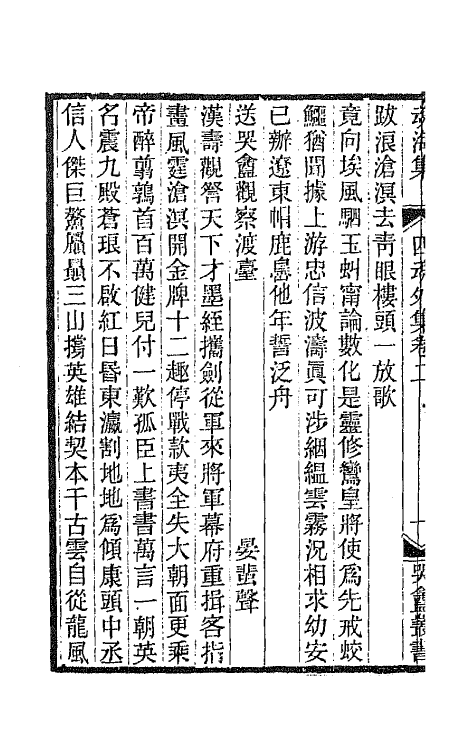 跋浪滄溟去靑眼樓頭一放歌
竟向埃風駟玉虯甯論數化是靈修鸞皇將使爲先戒蛟
鱷猶聞據上游忠信波濤眞可涉絪縕雲霧況相求幼安
已辦遼東帽鹿島他年誓泛舟
送哭盦觀察渡臺　晏蜚聲
漢壽觀詧天下才墨絰攜劍從軍來將軍幕府重揖客指
畫風霆滄溟開金牌十二趣停戰款夷全失大朝面更乘
帝醉翦鶉首百萬健兒付一歎孤臣上書書萬言一朝英
名震九殿蒼琅不啟紅日昬東瀛割地地爲傾康頭中丞
信人傑巨鰲贔屭三山撐英雄結契本千古雲自從龍風
魂海集　四魂外集卷二　十　哭盦叢書